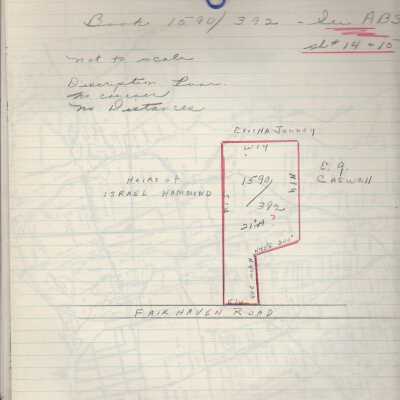 Book 1590/392 - See ABS
sh# 14+15
not to scale
Description Poor
no courses
no Distances
Elisha Jenney
W14
Heirs of
ISRAEL HAMMOND
E. G.
Caswell
1590
392
21 A
N14
FAIRHAVEN ROAD